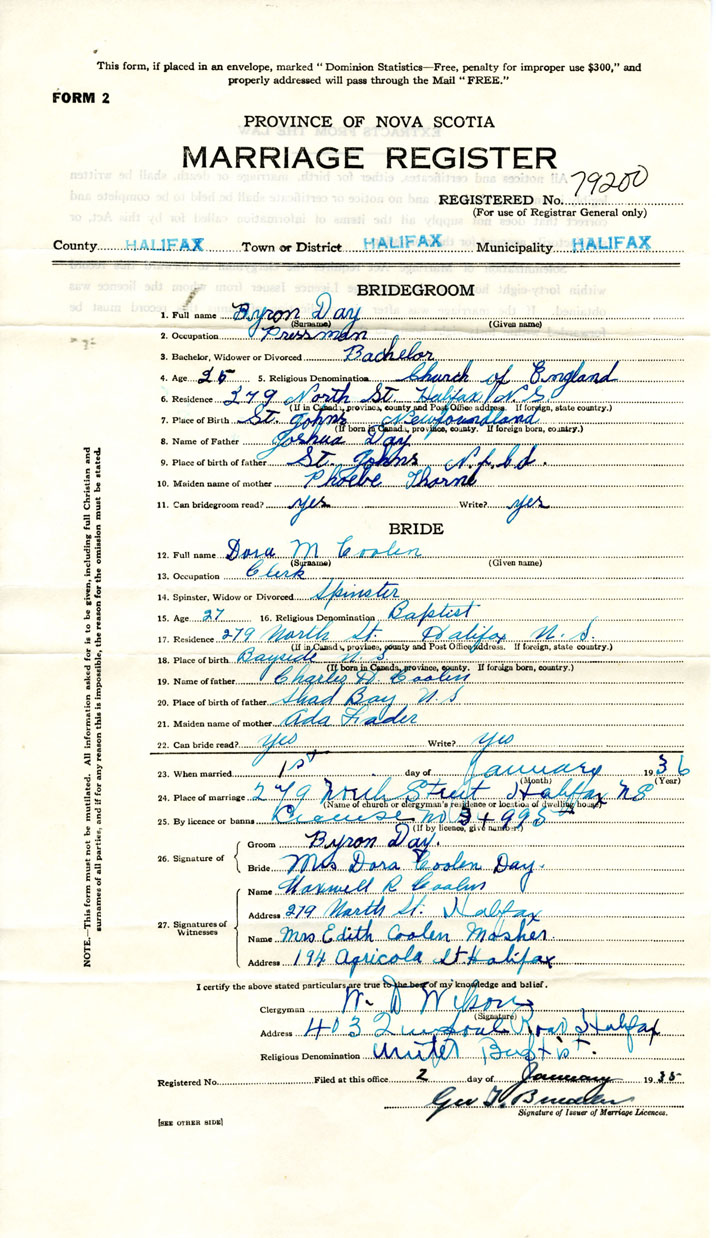 This form, if placed in an envelope, marked "Dominion Statistics—Free, penalty for improper use $300," and
properly addressed will pass through the Mail "FREE."
FORM 2
PROVINCE OF NOVA SCOTIA
MARRIAGE REGISTER
REGISTERED No. 79200
(For use of Registrar General only)
County HALIFAX Town or District HALIFAX Municipality HALIFAX
BRIDEGROOM
1. Full name Byron Day
(Surname) (Given name)
2. Occupation Pressman
3. Bachelor, Widower or Divorced Bachelor
4. Age 25 5. Religious Denomination Church of England
6. Residence 279 North St. Halifax N S
(If in Canada, province, county and Post Office address. If foreign, state country.)
7. Place of Birth St. Johns Newfoundland
(If born in Canada, province, county. If foreign born, country.)
8. Name of Father Joshua Day
9. Place of birth of father St. Johns N.f.l.d.
10. Maiden name of mother Phoebe Thorne
11. Can bridegroom read? yes Write? yes
BRIDE
12. Full name Dora M Coolen
(Surname) (Given name)
13. Occupation Clerk
14. Spinster, Widow or Divorced Spinster
15. Age 27 16. Religious Denomination Baptist
17. Residence 279 North St. Halifax N. S.
(If in Canada, province, county and Post Office address. If foreign, state country.)
18. Place of birth Bayside N. S.
(If born in Canada, province, county. If foreign born, country.)
19. Name of father Charles H. Coolen
20. Place of birth of father Shad Bay N S
21. Maiden name of mother Ada Fader
22. Can bride read? yes Write? yes
23. When married 1st day of January 1936
(Month) (Year)
24. Place of marriage 279 North Street Halifax NS
(Name of church or clergyman's residence or location of dwelling house)
25. By licence or banns License No 34995
(If by licence, give number)
26. Signature of
Groom Byron Day.
Bride Mrs Dora Coolen Day.
27. Signatures of Witnesses
Name Maxwell R Coolen
Address 279 North St. Halifax
Name Mrs Edith Coolen Mosher
Address 194 Agricola St. Halifax
I certify the above stated particulars are true to the best of my knowledge and belief.
Clergyman W. D Wilson
(Signature)
Address 403 Road Halifax
Religious Denomination United Baptist.
Registered No. Filed at this office 2 day of January 1935
Geo
Signature of Issuer of Marriage Licences.
[SEE OTHER SIDE]
NOTE.—This form must not be mutilated. All information asked for is to be given, including full Christian and
surnames of all parties, and if for any reason this is impossible, the reason for the omission must be stated.